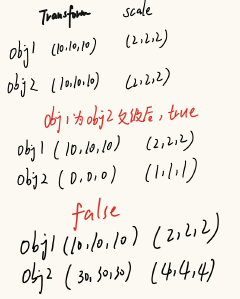 Transform scale
obj1 (10,10,10) (2,2,2)
obj2 (10,10,10) (2,2,2)
obj1为obj2父级后，true
obj1 (10,10,10) (2,2,2)
obj2 (0,0,0) (1,1,1)
false
obj1 (10,10,10) (2,2,2)
obj2 (30,30,30) (4,4,4)